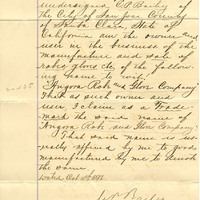 undersigned C. P. Bailey of
the City of San Jose County
of Santa Clara State of
California am the owner and
user in the business of the
manufacture and sale of
robes gloves etc of the follow-
ing name to wit:
"Angora Robe and Glove Company"
That as such owner and
user I claim as a Trade
mark the said name of
Angora Robe and Glove Company
That said name is
affixed by me to goods
manufactured by me to
the same.
Dated Oct
C. P. Bailey